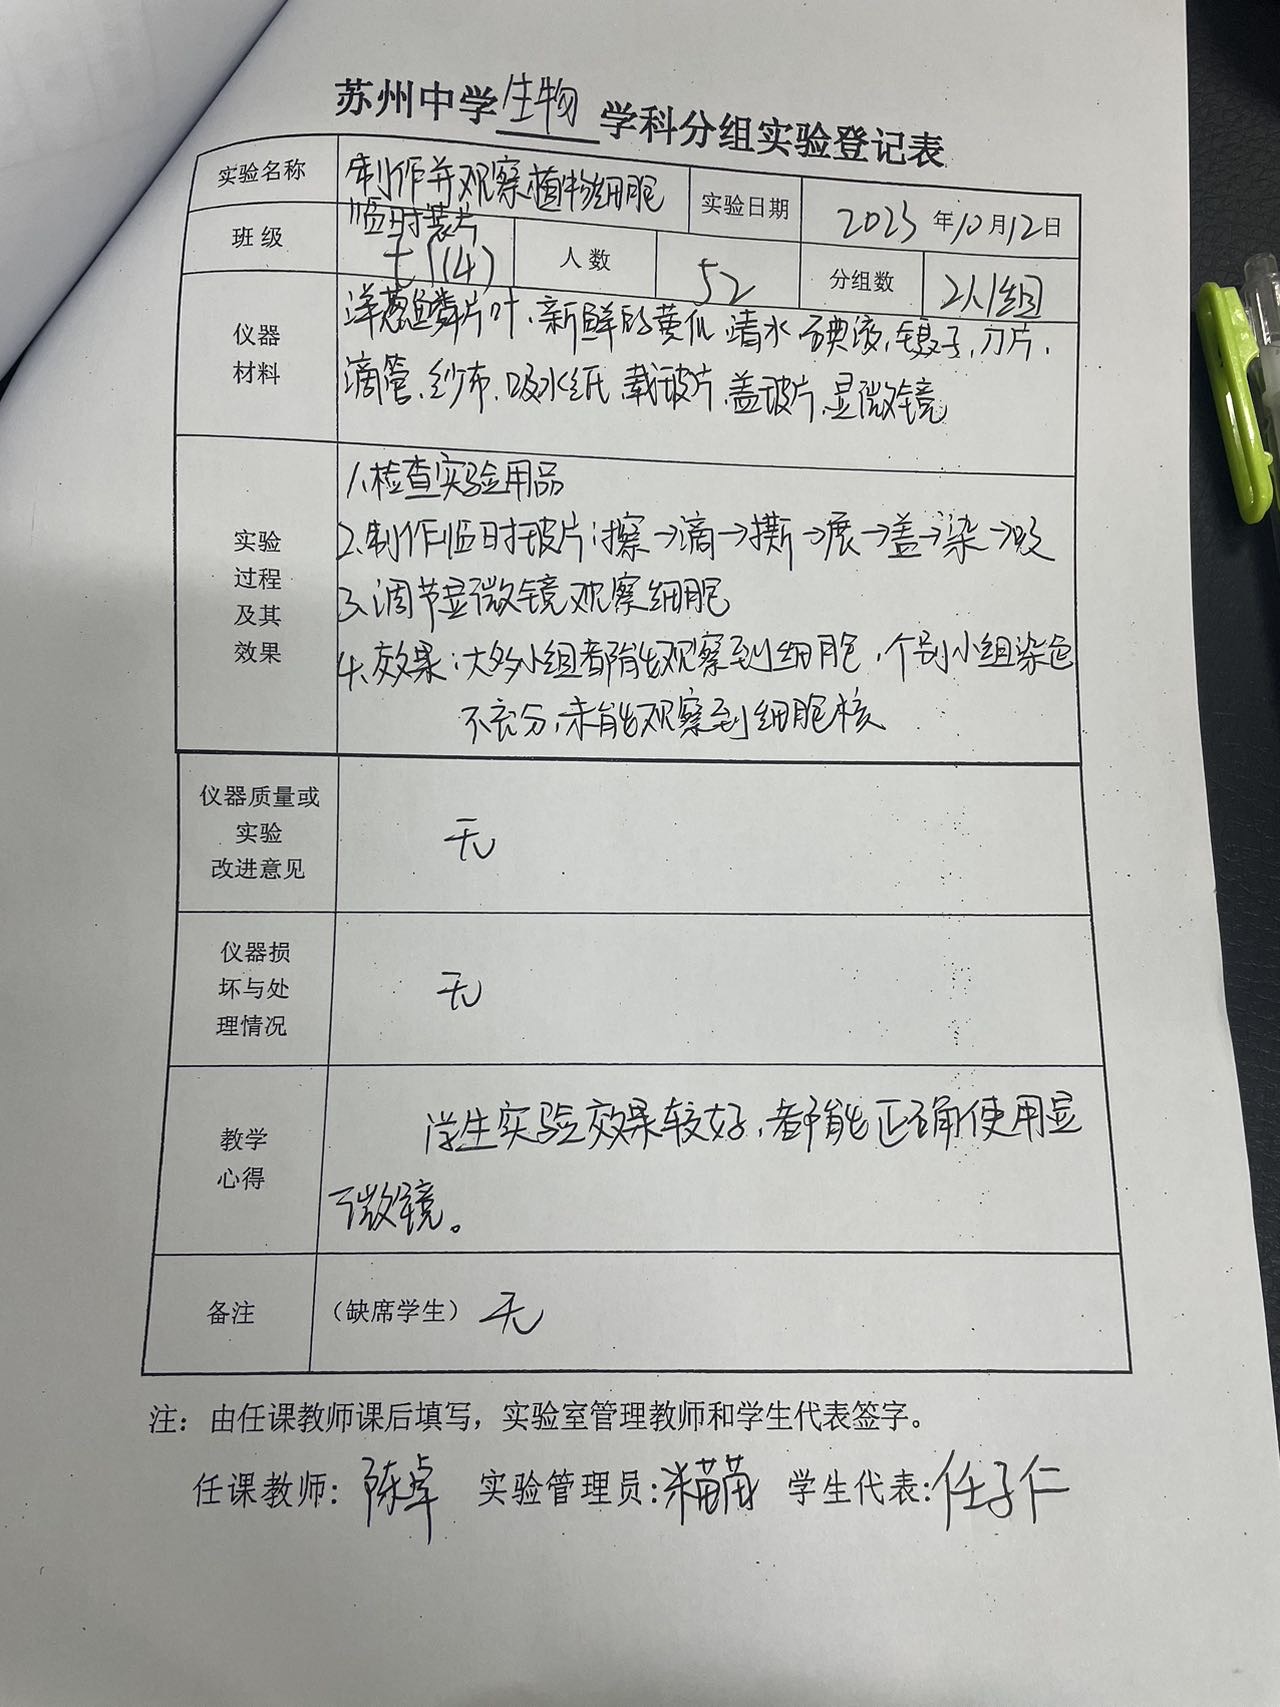 苏州中学生物学科分组实验登记表
实验名称 制作并观察植物细胞临时装片 实验日期 2023年10月12日
班级 七(14) 人数 52 分组数 2人1组
仪器材料
洋葱鳞片叶、新鲜的黄瓜、清水、碘液、镊子、刀片、
滴管、纱布、吸水纸、载玻片、盖玻片、显微镜
实验过程及其效果
1、检查实验用品
2、制作临时玻片:擦→滴→撕→展→盖→染→吸
3、调节显微镜观察细胞
4、效果:大多小组都能观察到细胞,个别小组染色
不充分,未能观察到细胞核
仪器质量或实验改进意见
无
仪器损坏与处理情况
无
教学心得
学生实验效果较好,都能正确使用显
微镜。
备注 (缺席学生) 无
注:由任课教师课后填写,实验室管理教师和学生代表签字。
任课教师:陈卓 实验管理员: 学生代表:任子仁